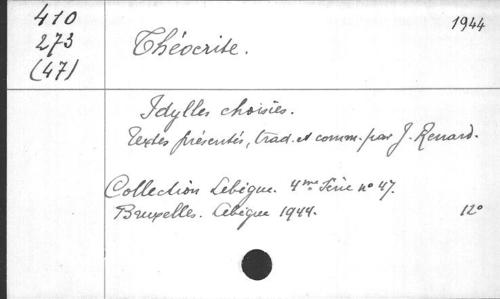 410
273
(47)
Théocrite.
1944
Idylles choisies.
Textes présentés, trad. et comm. par J. Renard.
Collection Lebègue. 4me Série no 47.
Bruxelles. Lebègue 1944.
12°